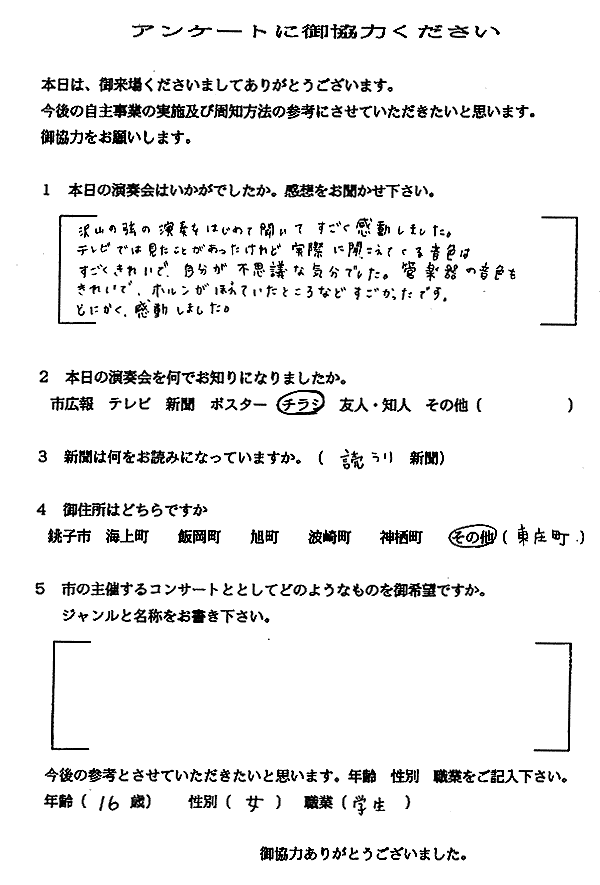 アンケートに御協力ください
本日は、御来場くださいましてありがとうございます。
今後の自主事業の実施及び周知方法の参考にさせていただきたいと思います。
御協力をお願いします。
1 本日の演奏会はいかがでしたか。感想をお聞かせ下さい。
沢山の弦の演奏をはじめて聞いてすごく感動しました。
テレビでは見たことがあったけれど実際に聞こえてくる音色は
すごくきれいで、自分が不思議な気分でした。管楽器の音色も
きれいで、ホルンがほえていたところなどすごかったです。
とにかく、感動しました。
2 本日の演奏会を何でお知りになりましたか。
市広報 テレビ 新聞 ポスター チラシ 友人・知人 その他( )
3 新聞は何をお読みになっていますか。( 読うり 新聞)
4 御住所はどちらですか
銚子市 海上町 飯岡町 旭町 波崎町 神栖町 その他(東庄町.)
5 市の主催するコンサートととしてどのようなものを御希望ですか。
ジャンルと名称をお書き下さい。
今後の参考とさせていただきたいと思います。年齢 性別 職業をご記入下さい。
年齢( 16 歳) 性別( 女 ) 職業(学生 )
御協力ありがとうございました。